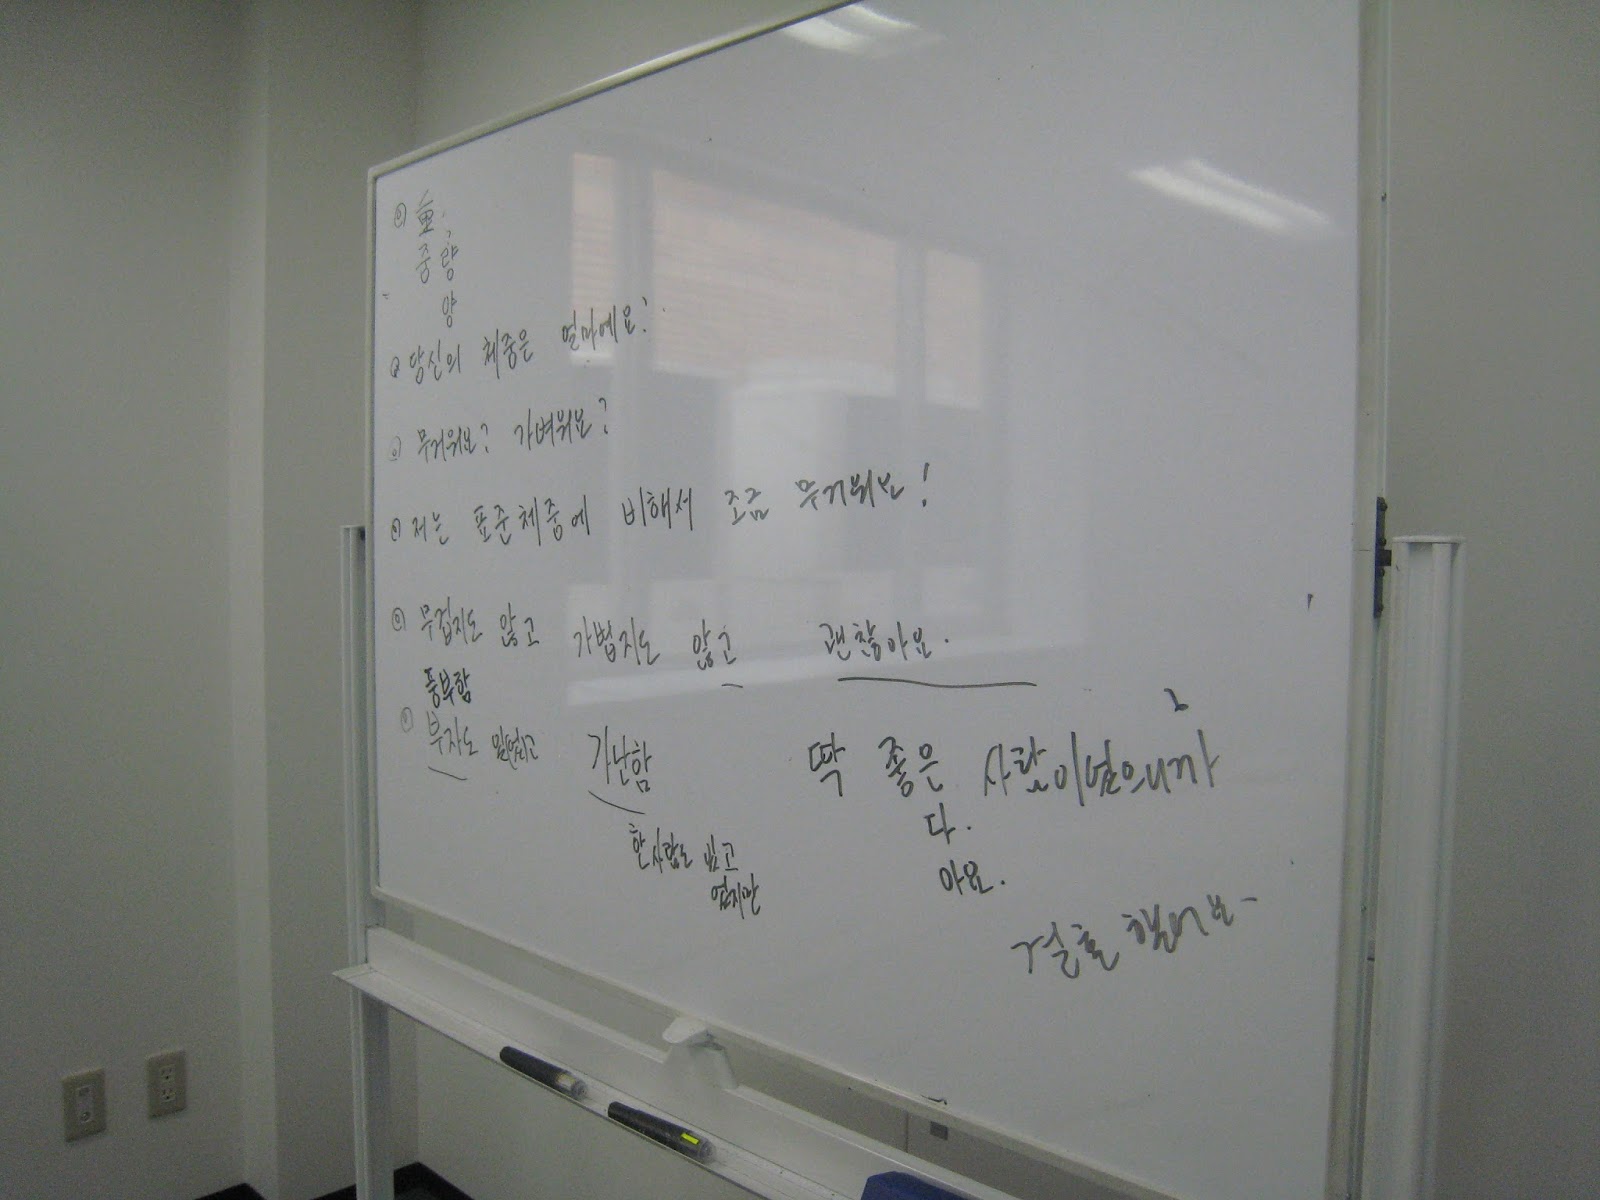 重
중 량
양
당신의 체중은 얼마에요?
무거워요? 가벼워요?
저는 표준체중에 비해서 조금 무거워요!
무겁지도 않고 가볍지도 않고 괜찮아요.
풍부함
부자도 가난함 딱 좋은 사람이였으니까
다.
한사람도 있고
없지만
아요.
결혼 했어요-